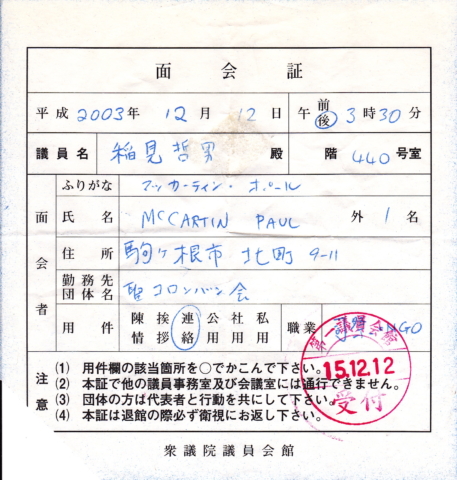 面会証
平成 2003年 12月 12日 午前後 3時30分
議員名 稲見哲男 殿 階 440号室
面会者
ふりがな マッカーティン・ポール
氏名 MCCARTIN PAUL 外 1 名
住所 駒ヶ根市 北町 9-11
勤務先団体名 聖コロンバン会
用件 陳情 挨拶 連絡 公用 社用 私用 職業 NGO
注意
(1) 用件欄の該当箇所を○でかこんで下さい。
(2) 本証で他の議員事務室及び会議室には通行できません。
(3) 団体の方は代表者と行動を共にして下さい。
(4) 本証は退館の際必ず衛視にお返し下さい。
第一議員会館
15.12.12
受付
衆議院議員会館